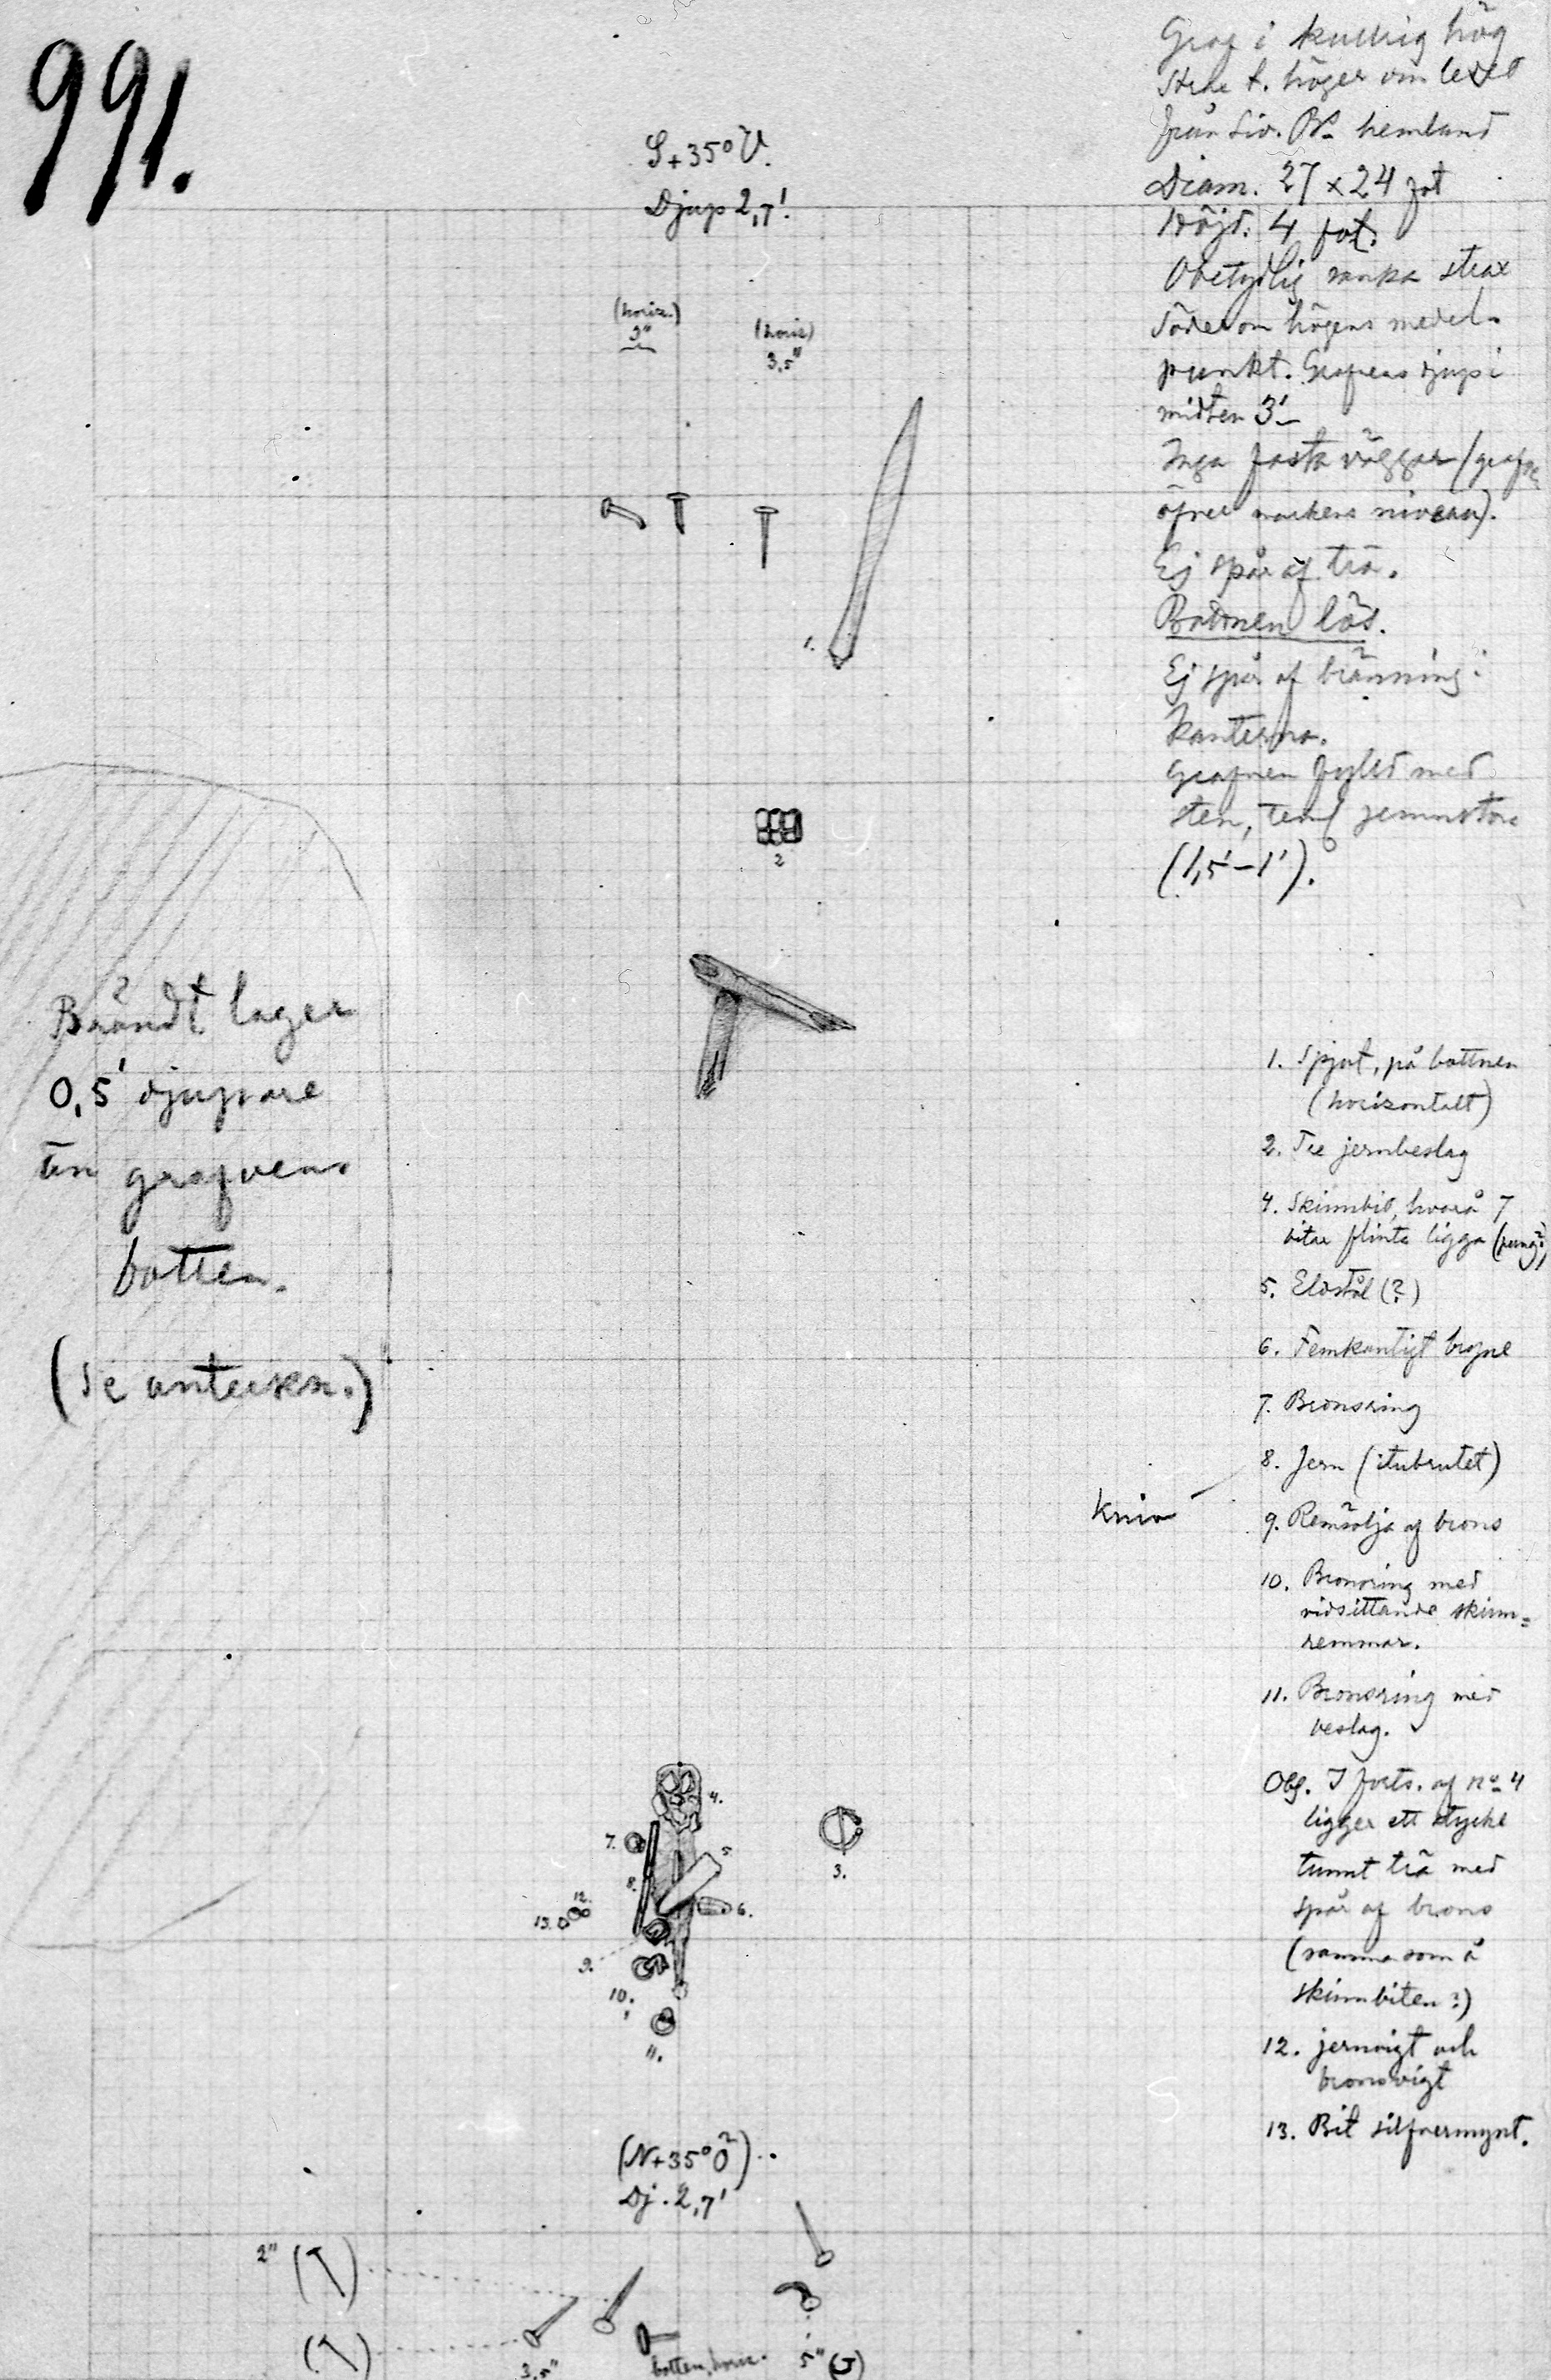 991.
S+35° V.
Djup 2,7'.
(horiz.)
3"
(horiz)
3,5"
1.
2
Graf i kullrig hög
till t. höger om ledet
från Hemland
Diam. 27 x 24 fot
Höjd: 4 fot.
Obetydlig sänka strax
söder om högens medel-
punkt. Grafvens djup i
midten 3'
Inga fasta väggar (grafv
öfver markens niveau).
Ej spår af trä.
Bottnen lös.
Ej spår af bränning i
kanterna.
Grafven fylld med
sten, teml jemnstora
(1,5'–1').
Brändt lager
0,5' djupare
än grafvens
botten.
(Se anteckn.)
1. Spjut, på bottnen
(horizontalt)
2. Tre jernbeslag
4. Skinnbit, hvarå 7
bitar flinta ligga (pung?)
5. Eldstål (?)
6. Femkantigt bryne
7. Bronsring
8. Jern (itubrutet)
Kniv
9. Remsölja af brons
10. Bronsring med
vidsittande skinn=
remmar.
11. Bronsring med
beslag.
Obs. I forts. af No 4
ligger ett stycke
tunnt trä med
spår af brons
(samma som å
skinnbiten?)
12. jernvigt och
bronsvigt
13. Bit silfvermynt.
4.
7.
5.
3.
8.
12.
13.
6.
9.
10.
11.
(N+35° Ö)
Dj. 2,7'
2"
3,5"
botten, horiz.
5" (J)